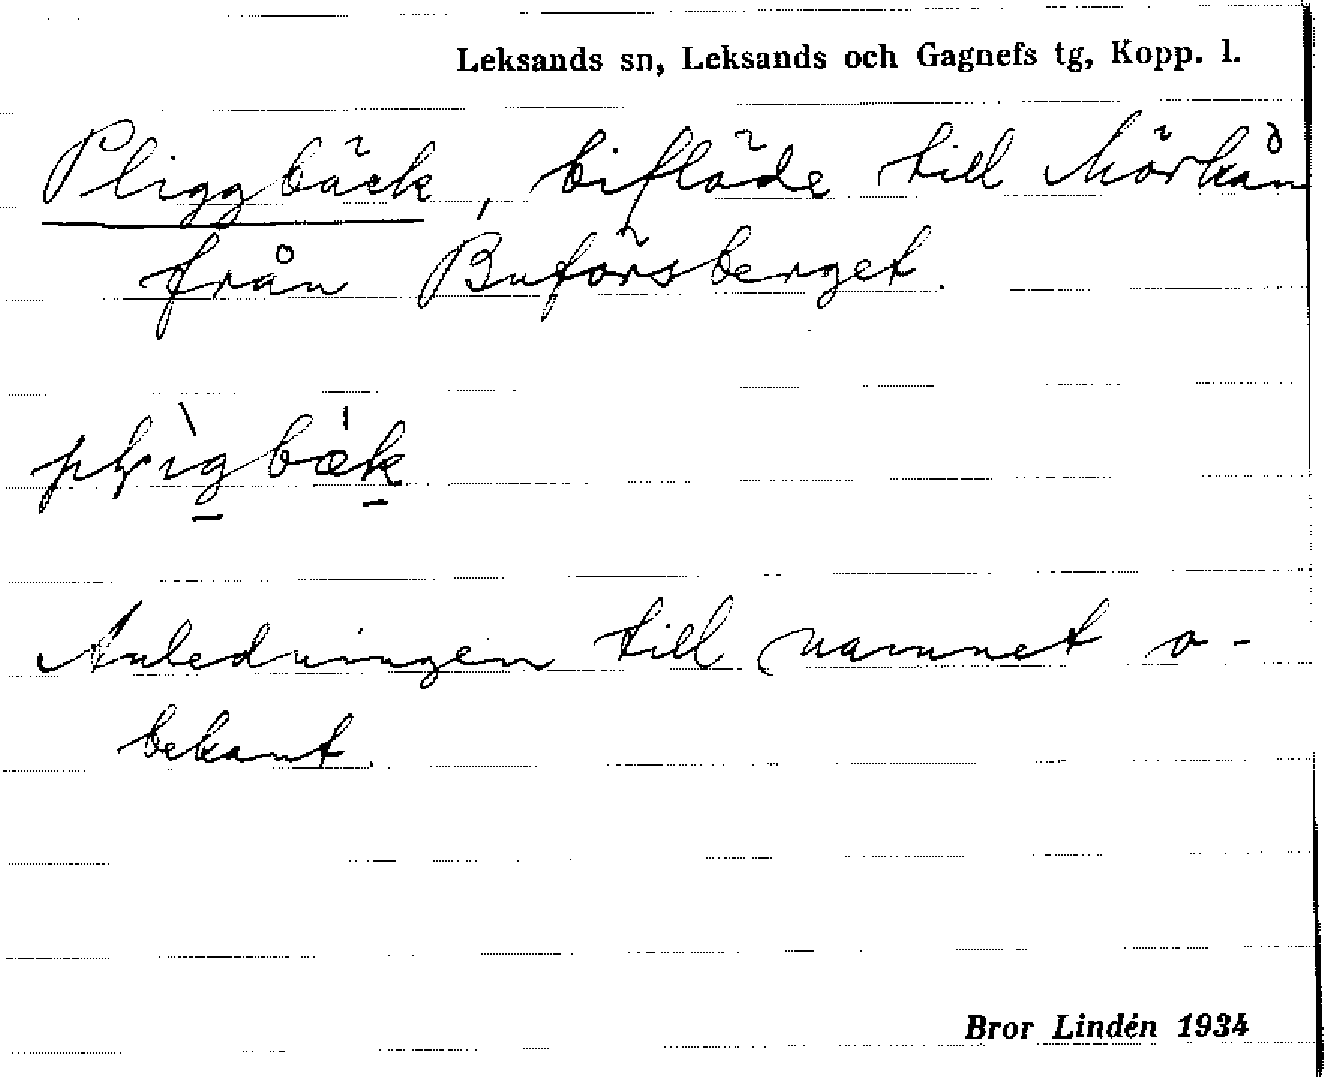 Leksands sn, Leksands och Gagnefs tg, Kopp. l.
Pliggbäck, biflöde till Mörkån
från Buförsberget.
Anledningen till namnet o-
bekant.
Bror Lindén 1934